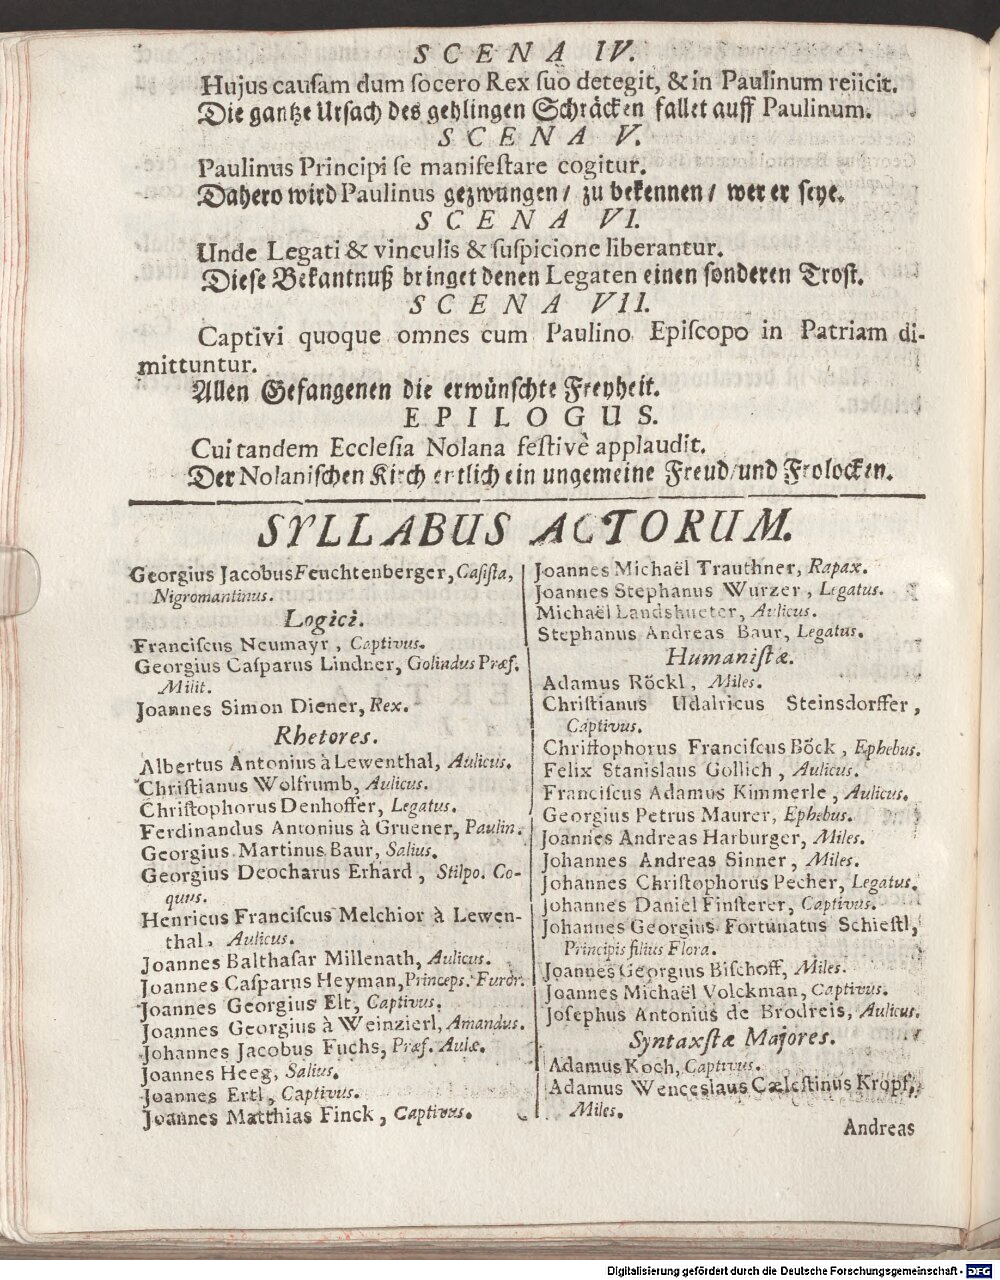 SCENA IV.
Hujus causam dum socero Rex suo detegit, & in Paulinum reiicit.
Die gantze Ursach des gehlingen Schräcken fallet auff Paulinum.
SCENA V.
Paulinus Principi se manifestare cogitur.
Dahero wird Paulinus gezwungen / zu bekennen / wer er seye.
SCENA VI.
Unde Legati & vinculis & suspicione liberantur.
Diese Bekantnuß bringet denen Legaten einen sonderen Trost.
SCENA VII.
Captivi quoque omnes cum Paulino Episcopo in Patriam di-
mittuntur.
Allen Gefangenen die erwünschte Freyheit.
EPILOGUS.
Cui tandem Ecclesia Nolana festivè applaudit.
Der Nolanischen Kirch ertlich ein ungemeine Freud / und Frolocken.
SYLLABUS ACTORUM.
Georgius Jacobus Feuchtenberger, Casista,
Nigromantinus.
Logici.
Franciscus Neumayr, Captivus.
Georgius Casparus Lindner, Golindus Præf.
Milit.
Joannes Simon Diener, Rex.
Rhetores.
Albertus Antonius à Lewenthal, Aulicus.
Christianus Wolfrumb, Aulicus.
Christophorus Denhoffer, Legatus.
Ferdinandus Antonius à Gruener, Paulin.
Georgius Martinus Baur, Salius.
Georgius Deocharus Erhard, Stilpo. Co-
quus.
Henricus Franciscus Melchior à Lewen-
thal, Aulicus.
Joannes Balthasar Millenath, Aulicus.
Joannes Casparus Heyman, Princeps. Furor.
Joannes Georgius Elt, Captivus.
Joannes Georgius à Weinzierl, Amandus.
Johannes Jacobus Fuchs, Præf. Aulæ.
Joannes Heeg, Salius.
Joannes Ertl, Captivus.
Joannes Matthias Finck, Captivus.
Joannes Michaël Trauthner, Rapax.
Joannes Stephanus Wurzer, Legatus.
Michaël Landshueter, Aulicus.
Stephanus Andreas Baur, Legatus.
Humanistæ.
Adamus Röckl, Miles.
Christianus Udalricus Steinsdorffer,
Captivus.
Christophorus Franciscus Böck, Ephebus.
Felix Stanislaus Gollich, Aulicus.
Franciscus Adamus Kimmerle, Aulicus.
Georgius Petrus Maurer, Ephebus.
Joannes Andreas Harburger, Miles.
Johannes Andreas Sinner, Miles.
Johannes Christophorus Pecher, Legatus.
Johannes Daniel Finsterer, Captivus.
Johannes Georgius Fortunatus Schiestl,
Principis filius Flora.
Joannes Georgius Bischoff, Miles.
Joannes Michaël Volckman, Captivus.
Josephus Antonius de Brodreis, Aulicus.
Syntaxstæ Majores.
Adamus Koch, Captivus.
Adamus Wenceslaus Cælestinus Kropf,
Miles.
Andreas
Digitalisierung gefördert durch die Deutsche Forschungsgemeinschaft - DFG